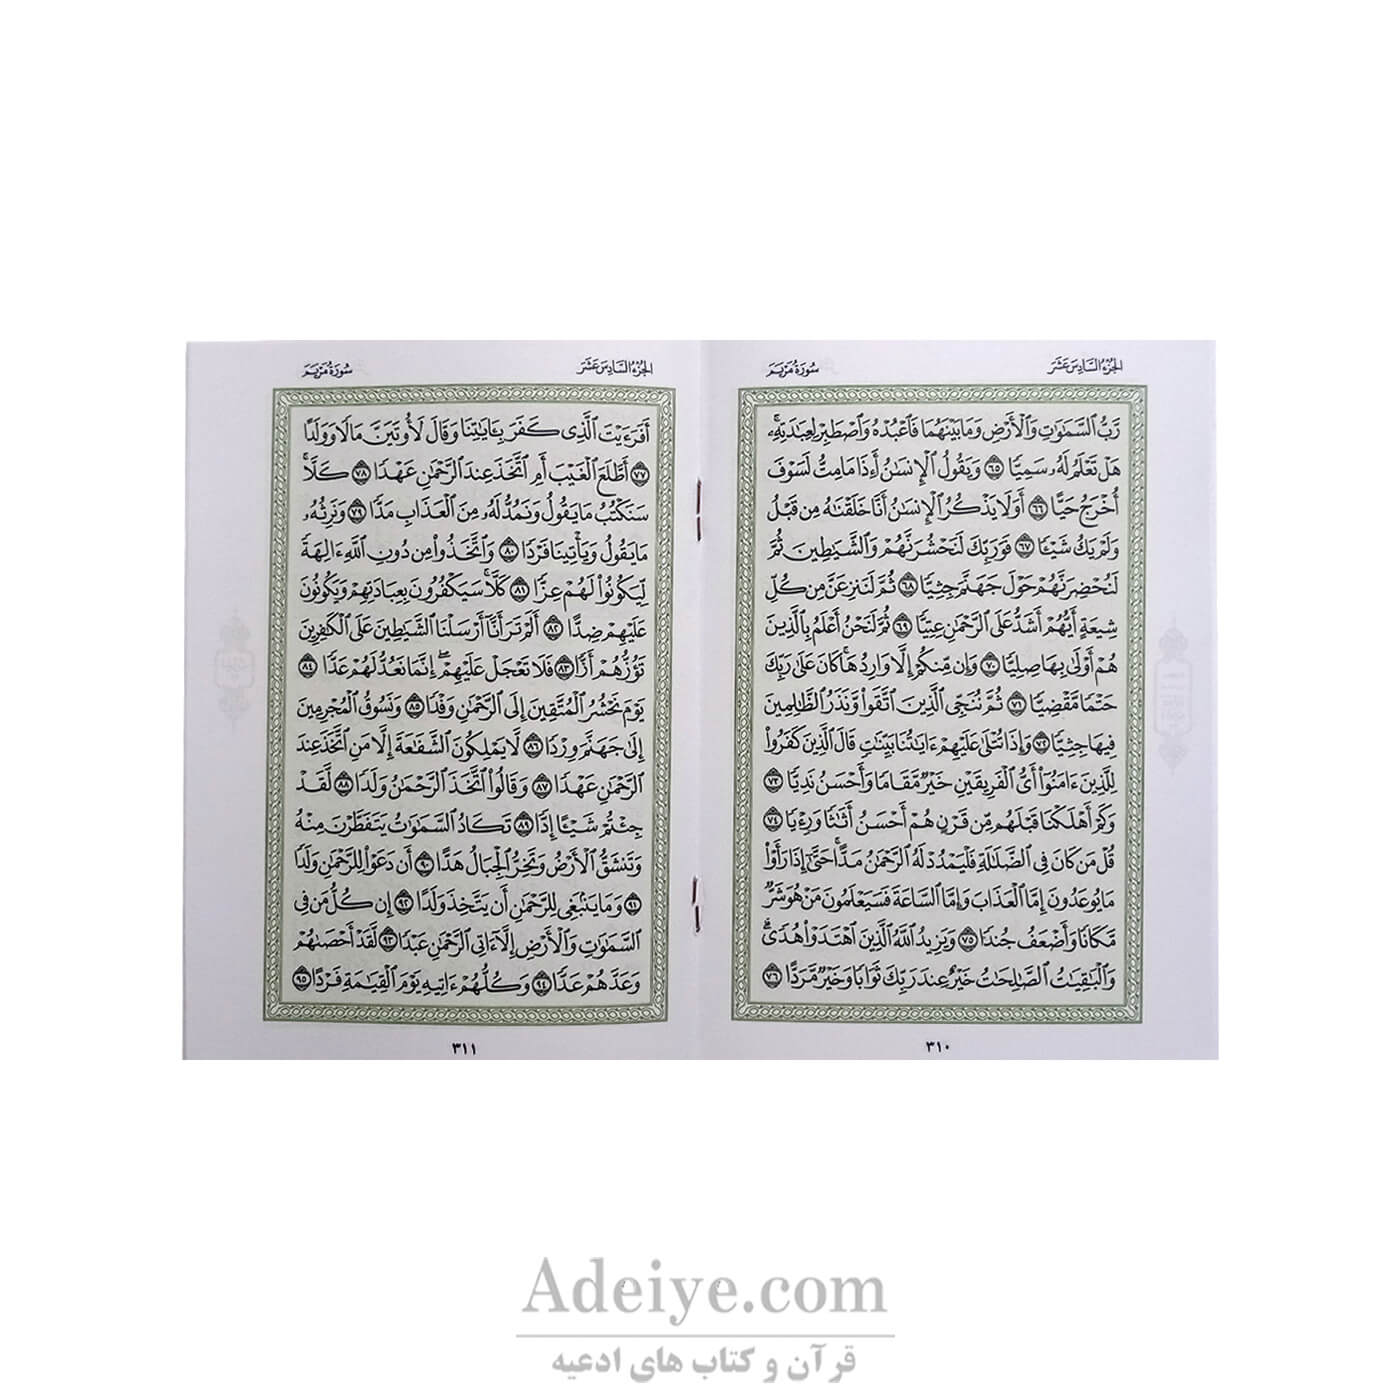 الجُزءُ السَّادِسَ عَشَرَ
سُورَةُ مَرۡيَمَ
رَّبُّ ٱلسَّمَٰوَٰتِ وَٱلۡأَرۡضِ وَمَا بَيۡنَهُمَا فَٱعۡبُدۡهُ وَٱصۡطَبِرۡ لِعِبَٰدَتِهِۦۚ
هَلۡ تَعۡلَمُ لَهُۥ سَمِيّٗا ٦٥ وَيَقُولُ ٱلۡإِنسَٰنُ أَءِذَا مَا مِتُّ لَسَوۡفَ
أُخۡرَجُ حَيًّا ٦٦ أَوَلَا يَذۡكُرُ ٱلۡإِنسَٰنُ أَنَّا خَلَقۡنَٰهُ مِن قَبۡلُ
وَلَمۡ يَكُ شَيۡـٔٗا ٦٧ فَوَرَبِّكَ لَنَحۡشُرَنَّهُمۡ وَٱلشَّيَٰطِينَ ثُمَّ
لَنُحۡضِرَنَّهُمۡ حَوۡلَ جَهَنَّمَ جِثِيّٗا ٦٨ ثُمَّ لَنَنزِعَنَّ مِن كُلِّ
شِيعَةٍ أَيُّهُمۡ أَشَدُّ عَلَى ٱلرَّحۡمَٰنِ عِتِيّٗا ٦٩ ثُمَّ لَنَحۡنُ أَعۡلَمُ بِٱلَّذِينَ
هُمۡ أَوۡلَىٰ بِهَا صِلِيّٗا ٧٠ وَإِن مِّنكُمۡ إِلَّا وَارِدُهَاۚ كَانَ عَلَىٰ رَبِّكَ
حَتۡمٗا مَّقۡضِيّٗا ٧١ ثُمَّ نُنَجِّي ٱلَّذِينَ ٱتَّقَواْ وَّنَذَرُ ٱلظَّٰلِمِينَ
فِيهَا جِثِيّٗا ٧٢ وَإِذَا تُتۡلَىٰ عَلَيۡهِمۡ ءَايَٰتُنَا بَيِّنَٰتٖ قَالَ ٱلَّذِينَ كَفَرُواْ
لِلَّذِينَ ءَامَنُوٓاْ أَيُّ ٱلۡفَرِيقَيۡنِ خَيۡرٞ مَّقَامٗا وَأَحۡسَنُ نَدِيّٗا ٧٣
وَكَمۡ أَهۡلَكۡنَا قَبۡلَهُم مِّن قَرۡنٍ هُمۡ أَحۡسَنُ أَثَٰثٗا وَرِءۡيٗا ٧٤
قُلۡ مَن كَانَ فِي ٱلضَّلَٰلَةِ فَلۡيَمۡدُدۡ لَهُ ٱلرَّحۡمَٰنُ مَدًّاۚ حَتَّىٰٓ إِذَا رَأَوۡاْ
مَا يُوعَدُونَ إِمَّا ٱلۡعَذَابَ وَإِمَّا ٱلسَّاعَةَ فَسَيَعۡلَمُونَ مَنۡ هُوَ شَرّٞ
مَّكَانٗا وَأَضۡعَفُ جُندٗا ٧٥ وَيَزِيدُ ٱللَّهُ ٱلَّذِينَ ٱهۡتَدَوۡاْ هُدٗىۗ
وَٱلۡبَٰقِيَٰتُ ٱلصَّٰلِحَٰتُ خَيۡرٌ عِندَ رَبِّكَ ثَوَابٗا وَخَيۡرٞ مَّرَدًّا ٧٦
٣١٠
الجُزءُ السَّادِسَ عَشَرَ
سُورَةُ مَرۡيَمَ
أَفَرَءَيۡتَ ٱلَّذِي كَفَرَ بِـَٔايَٰتِنَا وَقَالَ لَأُوتَيَنَّ مَالٗا وَوَلَدًا
٧٧ أَطَّلَعَ ٱلۡغَيۡبَ أَمِ ٱتَّخَذَ عِندَ ٱلرَّحۡمَٰنِ عَهۡدٗا ٧٨ كَلَّاۚ
سَنَكۡتُبُ مَا يَقُولُ وَنَمُدُّ لَهُۥ مِنَ ٱلۡعَذَابِ مَدّٗا ٧٩ وَنَرِثُهُۥ
مَا يَقُولُ وَيَأۡتِينَا فَرۡدٗا ٨٠ وَٱتَّخَذُواْ مِن دُونِ ٱللَّهِ ءَالِهَةٗ
لِّيَكُونُواْ لَهُمۡ عِزّٗا ٨١ كَلَّاۚ سَيَكۡفُرُونَ بِعِبَادَتِهِمۡ وَيَكُونُونَ
عَلَيۡهِمۡ ضِدًّا ٨٢ أَلَمۡ تَرَ أَنَّآ أَرۡسَلۡنَا ٱلشَّيَٰطِينَ عَلَى ٱلۡكَٰفِرِينَ
تَؤُزُّهُمۡ أَزّٗا ٨٣ فَلَا تَعۡجَلۡ عَلَيۡهِمۡۖ إِنَّمَا نَعُدُّ لَهُمۡ عَدّٗا ٨٤
يَوۡمَ نَحۡشُرُ ٱلۡمُتَّقِينَ إِلَى ٱلرَّحۡمَٰنِ وَفۡدٗا ٨٥ وَنَسُوقُ ٱلۡمُجۡرِمِينَ
إِلَىٰ جَهَنَّمَ وِرۡدٗا ٨٦ لَّا يَمۡلِكُونَ ٱلشَّفَٰعَةَ إِلَّا مَنِ ٱتَّخَذَ عِندَ
ٱلرَّحۡمَٰنِ عَهۡدٗا ٨٧ وَقَالُواْ ٱتَّخَذَ ٱلرَّحۡمَٰنُ وَلَدٗا ٨٨ لَّقَدۡ
جِئۡتُمۡ شَيۡـًٔا إِدّٗا ٨٩ تَكَادُ ٱلسَّمَٰوَٰتُ يَتَفَطَّرۡنَ مِنۡهُ
وَتَنشَقُّ ٱلۡأَرۡضُ وَتَخِرُّ ٱلۡجِبَالُ هَدًّا ٩٠ أَن دَعَوۡاْ لِلرَّحۡمَٰنِ وَلَدٗا
٩١ وَمَا يَنۢبَغِي لِلرَّحۡمَٰنِ أَن يَتَّخِذَ وَلَدًا ٩٢ إِن كُلُّ مَن فِي
ٱلسَّمَٰوَٰتِ وَٱلۡأَرۡضِ إِلَّآ ءَاتِي ٱلرَّحۡمَٰنِ عَبۡدٗا ٩٣ لَّقَدۡ أَحۡصَىٰهُمۡ
وَعَدَّهُمۡ عَدّٗا ٩٤ وَكُلُّهُمۡ ءَاتِيهِ يَوۡمَ ٱلۡقِيَٰمَةِ فَرۡدًا ٩٥
٣١١
Adeiye.com
قرآن و کتاب های ادعیه